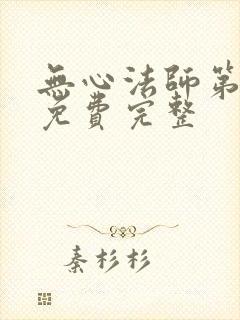 無心法師第
免費完整
秦杉杉